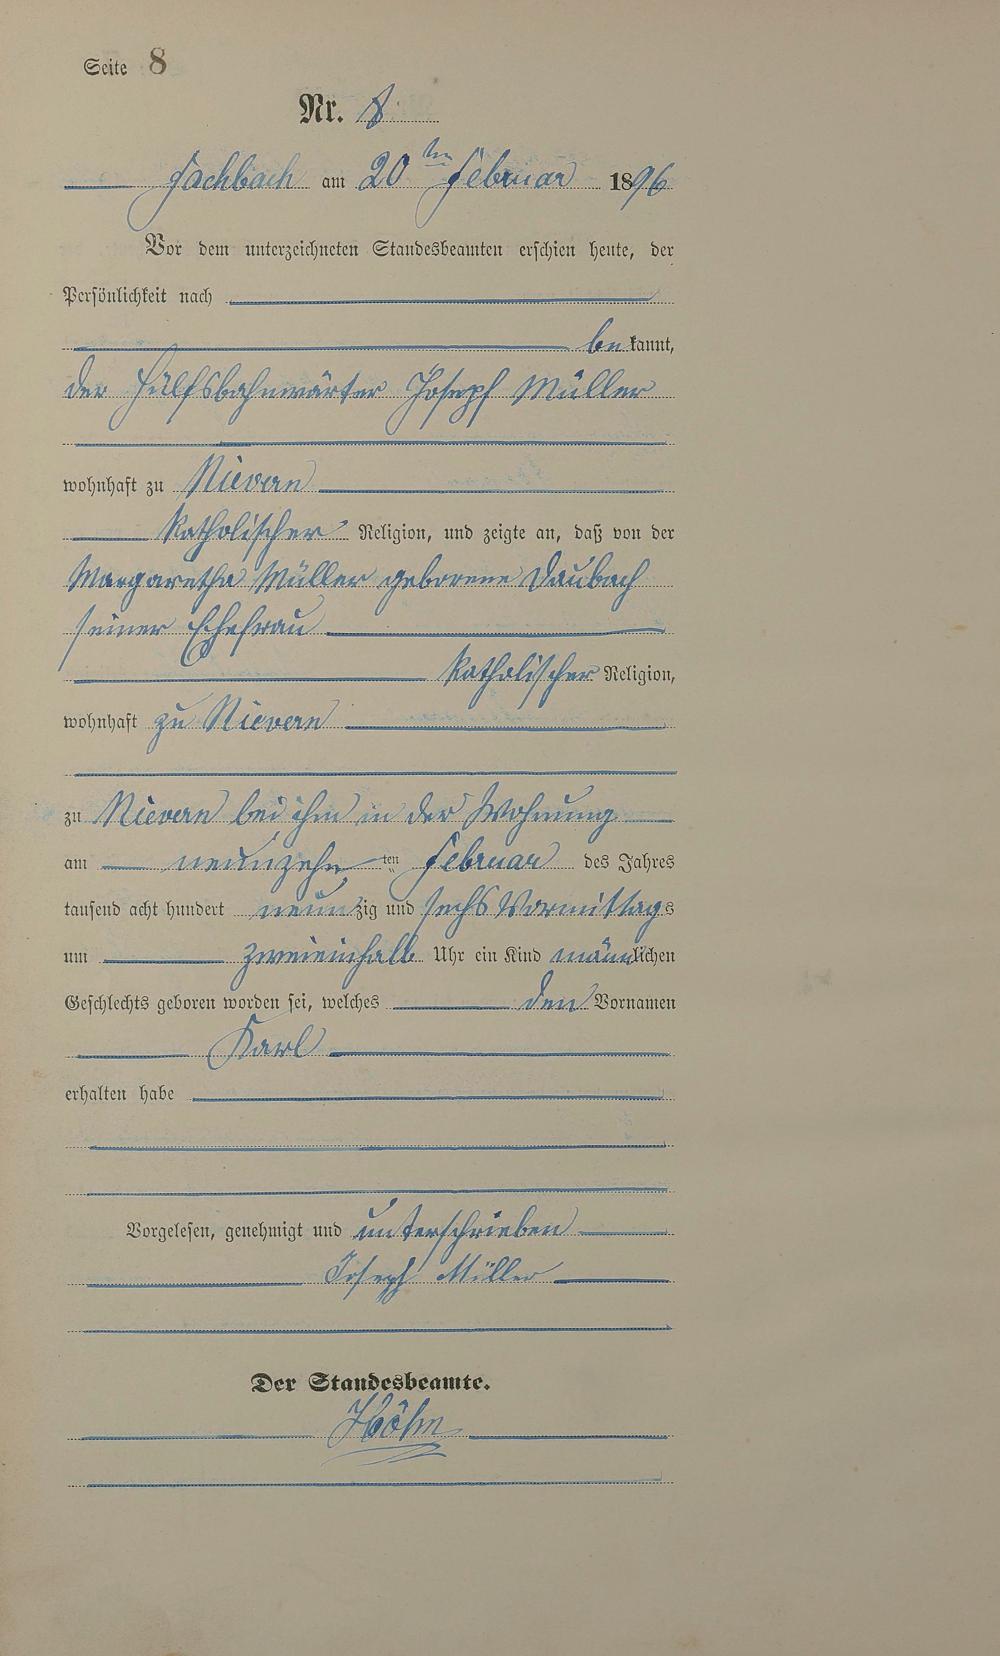 Seite 8
Nr. 8.
Fachbach am 20ten Februar 1896
Vor dem unterzeichneten Standesbeamten erschien heute, der
Persönlichkeit nach
bekannt,
der Hülfsbahnwärter Joseph Müller
wohnhaft zu Nievern
katholischer Religion, und zeigte an, daß von der
Margaretha Müller geborene Daubach
seiner Ehefrau
katholischer Religion,
wohnhaft zu Nievern
zu Nievern bei ihm in der Wohnung
am neunzehnten Februar des Jahres
tausend acht hundert neunzig und sechs Vormittags
um zweieinhalb Uhr ein Kind männlichen
Geschlechts geboren worden sei, welches den Vornamen
Karl
erhalten habe
Vorgelesen, genehmigt und unterschrieben
Joseph Müller
Der Standesbeamte.